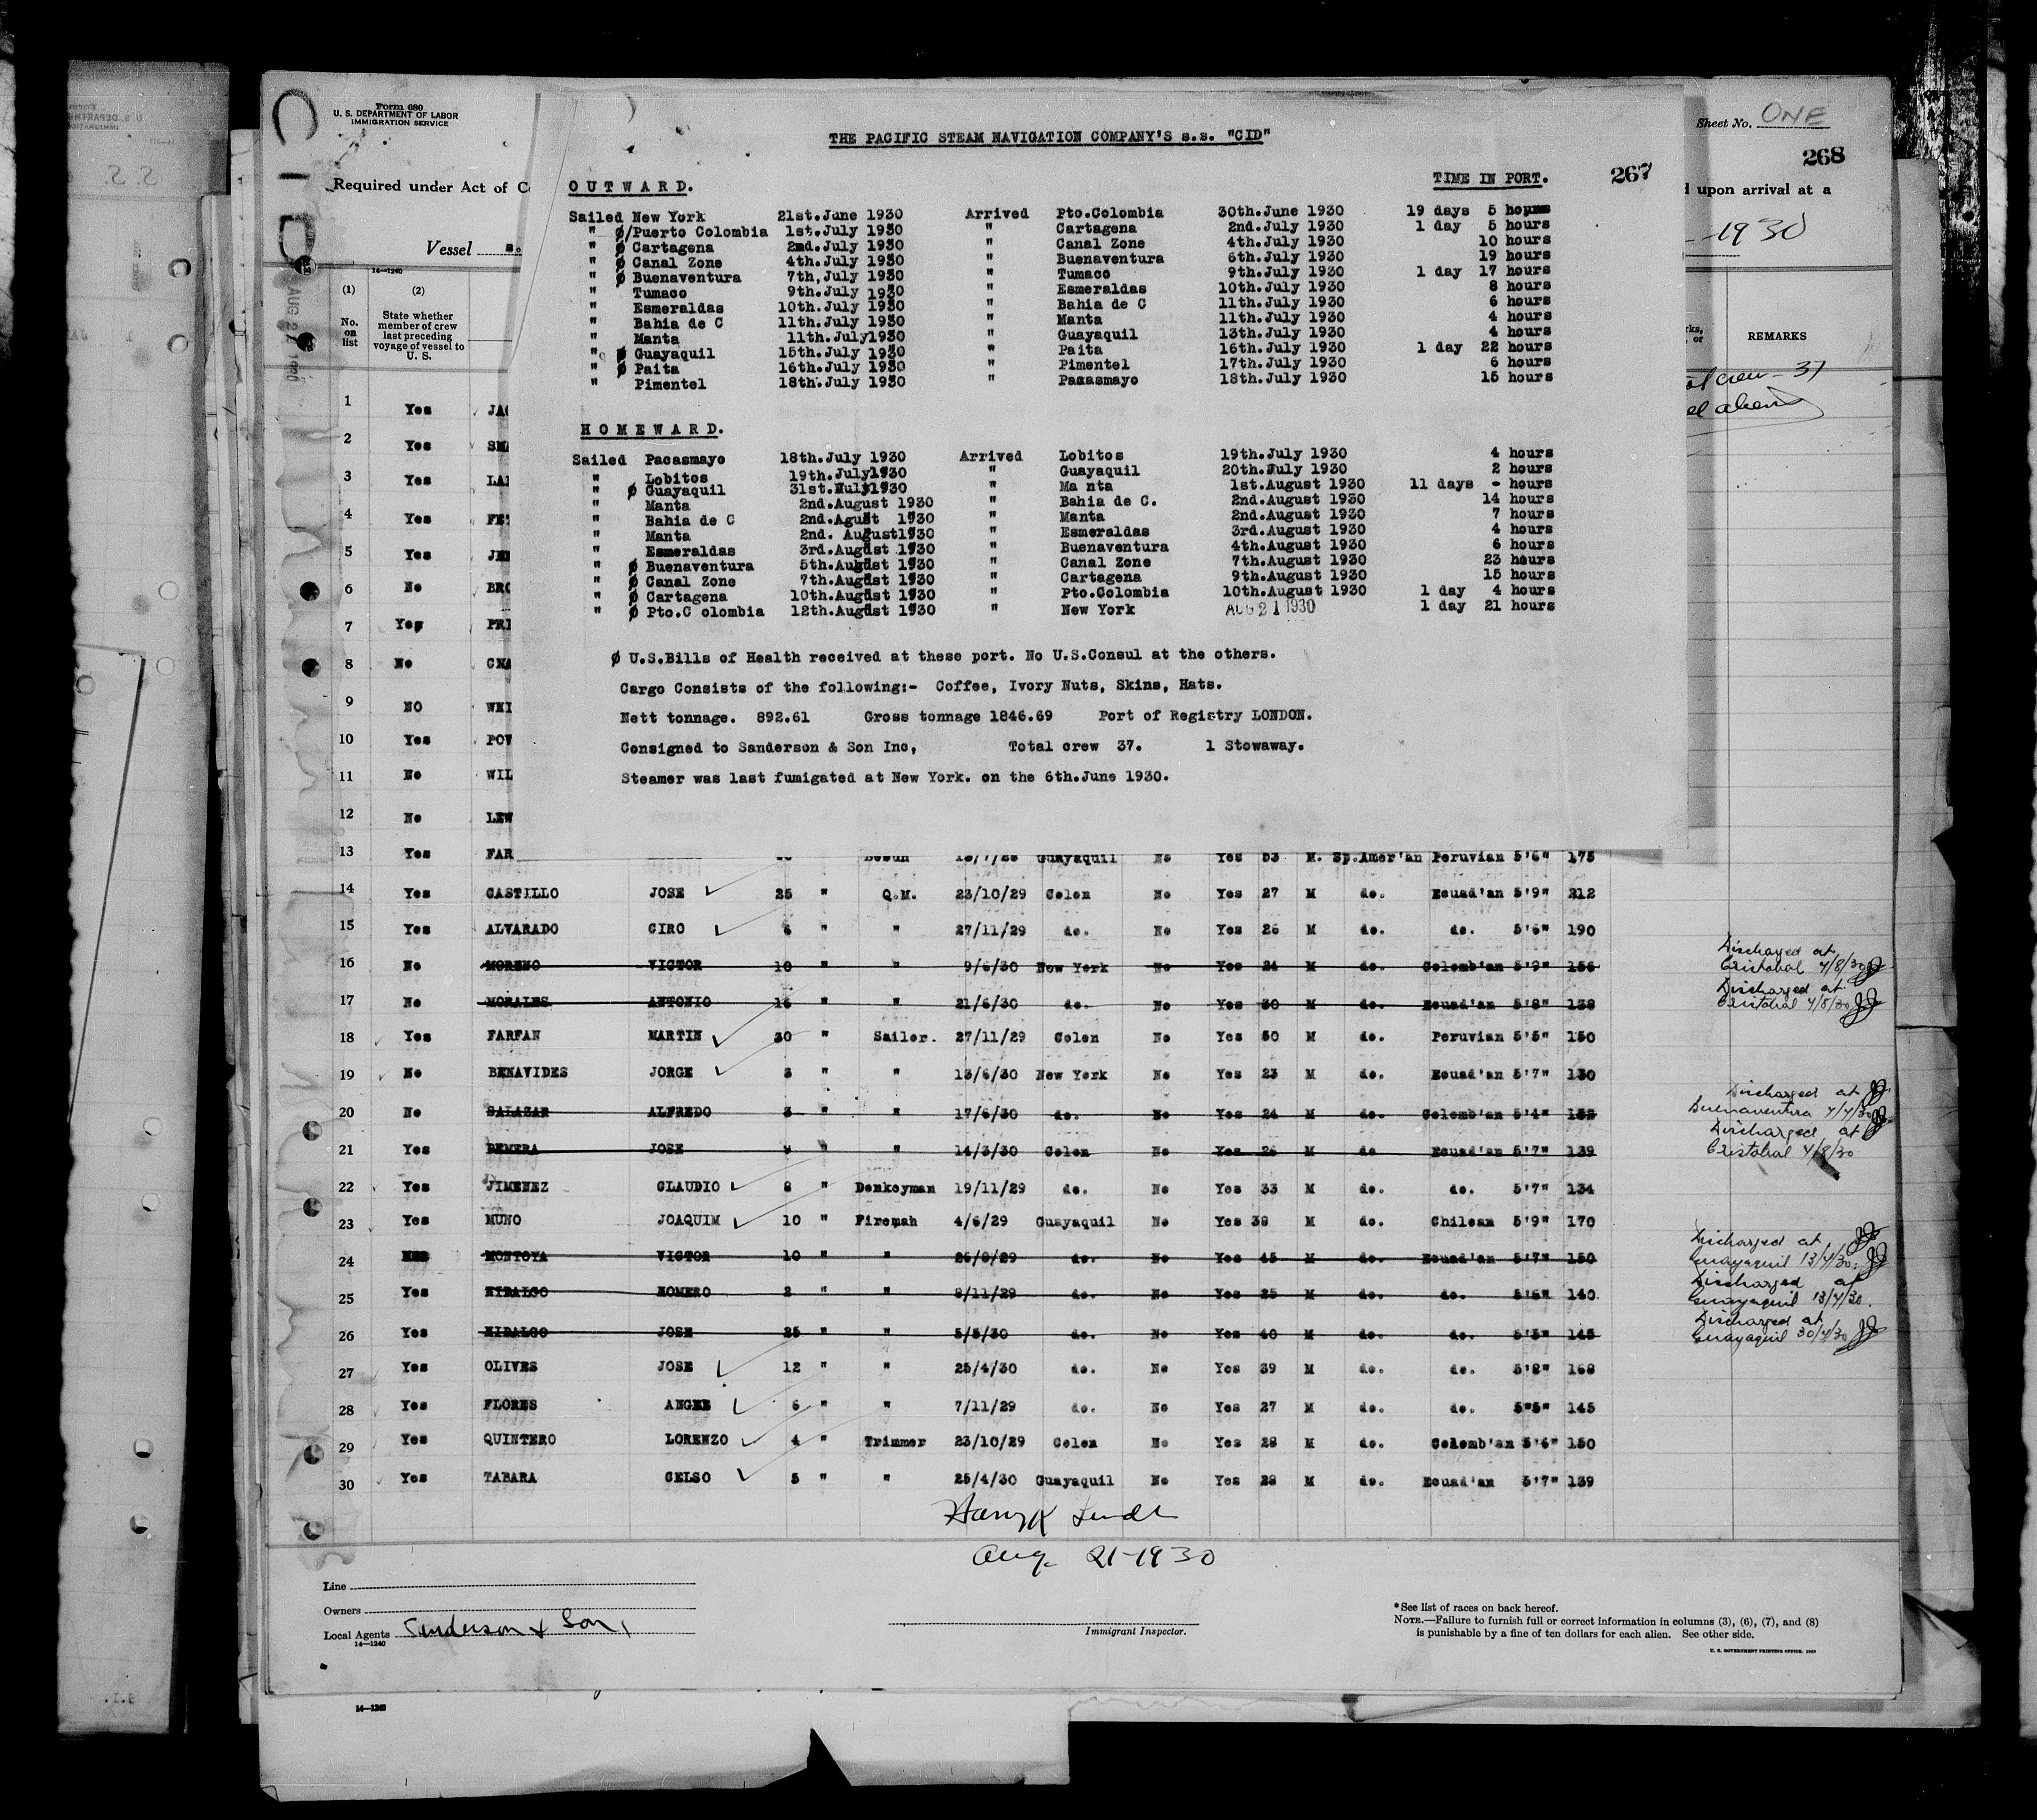 CID
Form 680
U. S. DEPARTMENT OF LABOR
IMMIGRATION SERVICE
Sheet No. ONE
268
267
Required under Act of
d upon arrival at a
Vessel
1930
THE PACIFIC STEAM NAVIGATION COMPANY'S s.s. "CID"
OUTWARD. TIME IN PORT.
Sailed New York 21st.June 1930 Arrived Pto.Colombia 30th.June 1930 19 days 5 hours
" ø/Puerto Colombia 1st.July 1930 " Cartagena 2nd.July 1930 1 day 5 hours
" ø Cartagena 2nd.July 1930 " Canal Zone 4th.July 1930 10 hours
" ø Canal Zone 4th.July 1930 " Buenaventura 6th.July 1930 19 hours
" ø Buenaventura 7th,July 1930 " Tumaco 9th.July 1930 1 day 17 hours
" Tumaco 9th.July 1930 " Esmeraldas 10th.July 1930 8 hours
" Esmeraldas 10th.July 1930 " Bahia de C 11th.July 1930 6 hours
" Bahia de C 11th.July 1930 " Manta 11th.July 1930 4 hours
" Manta 11th.July1930 " Guayaquil 13th.July 1930 4 hours
" ø Guayaquil 15th.July 1930 " Paita 16th.July 1930 1 day 22 hours
" ø Paita 16th.July 1930 " Pimentel 17th.July 1930 6 hours
" Pimentel 18th.July 1930 " Pacasmayo 18th.July 1930 15 hours
HOMEWARD.
Sailed Pacasmayo 18th.July 1930 Arrived Lobitos 19th.July 1930 4 hours
" Lobitos 19th.July1930 " Guayaquil 20th.July 1930 2 hours
" ø Guayaquil 31st.July1930 " Ma nta 1st.August 1930 11 days - hours
" Manta 2nd.August 1930 " Bahia de C. 2nd.August 1930 14 hours
" Bahia de C 2nd.Agust 1930 " Manta 2nd.August 1930 7 hours
" Manta 2nd. August1930 " Esmeraldas 3rd.August 1930 4 hours
" Esmeraldas 3rd.August 1930 " Buenaventura 4th.August 1930 6 hours
" ø Buenaventura 5th.August 1930 " Canal Zone 7th.August 1930 23 hours
" ø Canal Zone 7th.August 1930 " Cartagena 9th.August 1930 15 hours
" ø Cartagena 10th.August 1930 " Pto.Colombia 10th.August 1930 1 day 4 hours
" ø Pto.C olombia 12th.August 1930 " New York AUG 21 1930 1 day 21 hours
ø U.S.Bills of Health received at these port. No U.S.Consul at the others.
Cargo Consists of the following:- Coffee, Ivory Nuts, Skins, Hats.
Nett tonnage. 892.61 Gross tonnage 1846.69 Port of Registry LONDON.
Consigned to Sanderson & Son Inc, Total crew 37. 1 Stowaway.
Steamer was last fumigated at New York. on the 6th.June 1930.
14—1240
(1) (2)
No. on list
State whether member of crew last preceding voyage of vessel to U. S.
REMARKS
crew - 37
1 Yes JA
2 Yes SM
3 Yes LA
4 Yes FE
5 Yes JE
6 No BRO
7 Yes PRI
8 No CHA
9 NO WEI
10 Yes POW
11 No WIL
12 No LEW
13 Yes FAR Guayaquil No Yes 53 M. Sp.Amer'an Peruvian 5'6" 175
14 Yes CASTILLO JOSE 25 " Q.M. 23/10/29 Colon No Yes 27 M do. Ecuad'an 5'9" 212
15 Yes ALVARADO CIRO 6 " " 27/11/29 do. No Yes 26 M do. do. 5'6" 190
16 No MORENO VICTOR 10 " " 9/6/30 New York No Yes 24 M do. Colomb'an 5'9" 156 Discharged at Cristobal 4/8/30
17 No MORALES ANTONIO 16 " " 21/6/30 do. No Yes 30 M do. Ecuad'an 5'8" 138 Discharged at Cristobal 4/8/30
18 Yes FARFAN MARTIN 30 " Sailor. 27/11/29 Colon No Yes 50 M do. Peruvian 5'5" 150
19 No BENAVIDES JORGE 3 " " 13/6/30 New York No Yes 23 M do. Ecuad'an 5'7" 130
20 No SALAZAR ALFREDO 3 " " 17/6/30 do. No Yes 24 M do. Colomb'an 5'4" 132 Discharged at Buenaventura 4/4/30
21 Yes DEMERA JOSE 9 " " 14/3/30 Colon No Yes 26 M do. Ecuad'an 5'7" 139 Discharged at Cristobal 4/8/30
22 Yes JIMENEZ CLAUDIO 8 " Donkeyman 19/11/29 do. No Yes 33 M do. do. 5'7" 134
23 Yes MUNO JOAQUIM 10 " Fireman 4/6/29 Guayaquil No Yes 38 M do. Chilean 5'9" 170
24 MONTOYA VICTOR 10 " " 26/8/29 do. No Yes 45 M do. Ecuad'an 5'7" 150 Discharged at Guayaquil 13/4/30
25 Yes HIDALGO HOMERO 2 " " 8/11/29 do. No Yes 25 M do. do. 5'6" 140 Discharged at Guayaquil 13/4/30.
26 Yes HIDALGO JOSE 25 " " 5/5/30 do. No Yes 40 M do. do. 5'5" 145 Discharged at Guayaquil 30/4/30
27 Yes OLIVES JOSE 12 " " 25/4/30 do. No Yes 39 M do. do. 5'8" 168
28 Yes FLORES ANGEL 6 " " 7/11/29 do. No Yes 27 M do. do. 5"5" 145
29 Yes QUINTERO LORENZO 4 " Trimmer 23/10/29 Colon No Yes 28 M do. Colomb'an 5'6" 150
30 Yes TABARA CELSO 5 " " 25/4/30 Guayaquil No Yes 28 M do. Ecuad'an 5'7" 139
Aug 21-1930
Line
Owners
Local Agents Sanderson & Son,
14—1240
Immigrant Inspector.
*See list of races on back hereof.
NOTE.—Failure to furnish full or correct information in columns (3), (6), (7), and (8)
is punishable by a fine of ten dollars for each alien. See other side.
14—1240